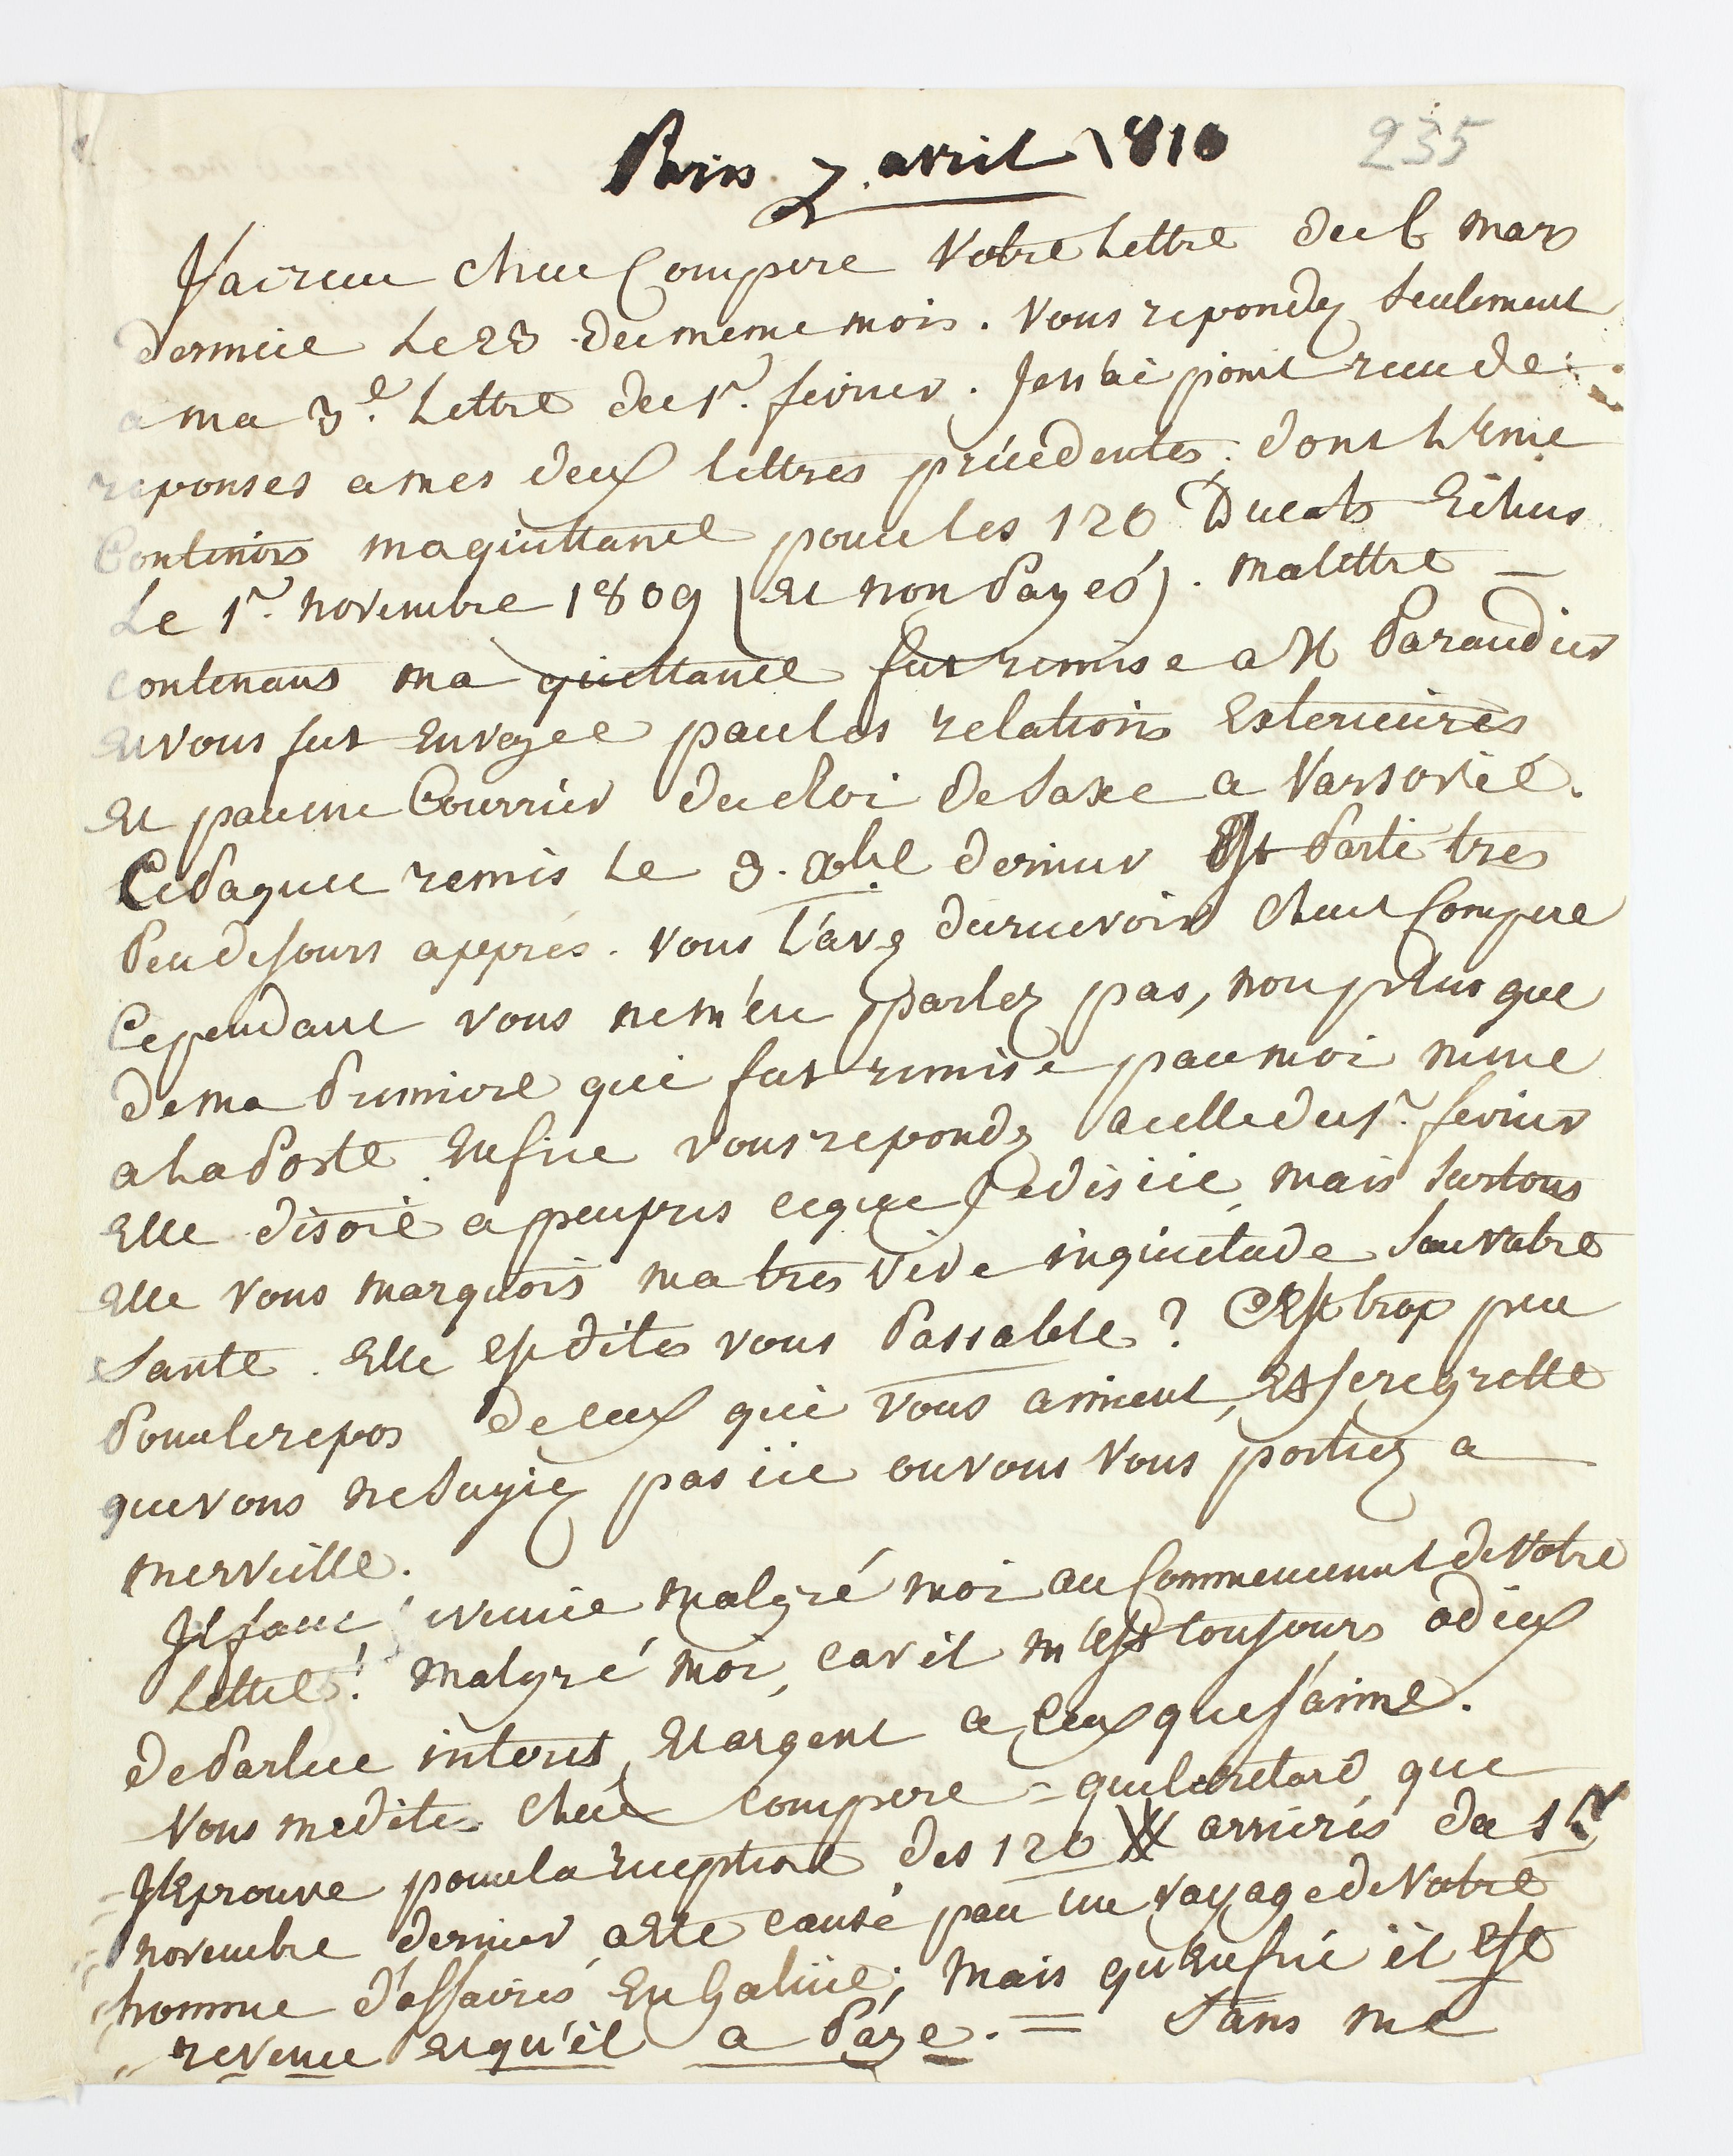 Paris 7. avril 1810
235
J'ai recu cher Compere Votre Lettre du 6 mars
dernier Le 23 du meme mois. Vous repondez seulement
a ma 3.e Lettre du 1r. fevrier. Je n'ai point recu de
reponses a mes deux lettres précédentes, dont L'une
Contenoit ma quittance pour les 120 Ducats Echus
Le 1r. novembre 1809 (et non Payés). ma lettre
contenant ma quittance fut remise a M Parandier
et vous fut envoyee par les relations Exterieures
et par un Courrier du Roi de Saxe a Varsovie.
Ce Paquet remis Le 3. xbre dernier Est Parti tres
Peu de jours apprés. vous L'avez du recevoir cher Compere
Cependant vous ne m'en parlez pas, non plus que
de ma Premiere qui fut remise par moi meme
a La Poste. Enfin vous repondez a celle du 1r. fevrier
Elle disoit a peu pres ce que je dis ici, mais surtout
Elle vous marquoit ma tres vive inquietude sur votre
santé. Elle est dites vous Passable? C'Est trop peu
Pour le repos de ceux qui vous aiment, Et je regrette
que vous ne soyiez pas ici ou vous vous portiez a
merveille.
Il faut revenir malgré moi au Commencement de Votre
Lettre! malgré moi, car il m'Est toujours odieux
de Parler interet, Et argent a Ceux que j'aime.
Vous me dites cher compere = que le retard que
J'Eprouve pour la reception des 120 # arriérés du 1r
novembre dernier a Eté causé par un voyage de Votre
homme d'affaires En Galicie; mais qu'Enfin il Est
revenu et qu'il a Payé. = Sans me